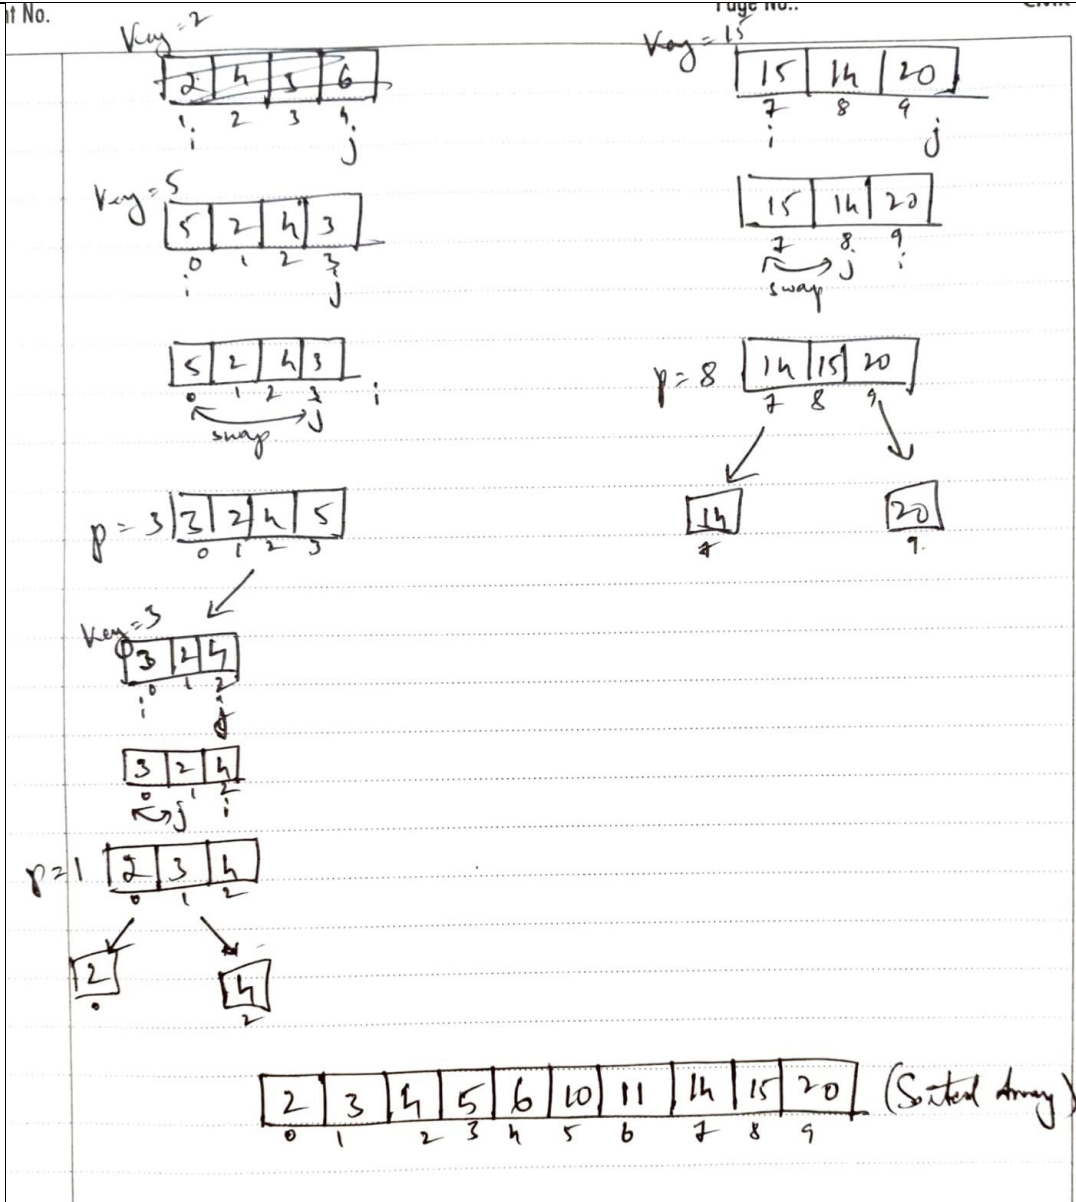 nt No.
Page No.:
Key = 2
2 4 5 6
1 2 3 4
i j
Key = 5
5 2 4 3
0 1 2 3
i j
5 2 4 3
0 1 2 3 i
j
swap
p = 3 3 2 4 5
0 1 2 3
Key = 3
3 2 4
0 1 2
i j
3 2 4
0 1 2
j i
p = 1 2 3 4
0 1 2
2 4
0 2
Key = 15
15 14 20
7 8 9
i j
15 14 20
7 8 9
j i
swap
p = 8 14 15 20
7 8 9
14 20
7 9
2 3 4 5 6 10 11 14 15 20 (Sorted Array)
0 1 2 3 4 5 6 7 8 9